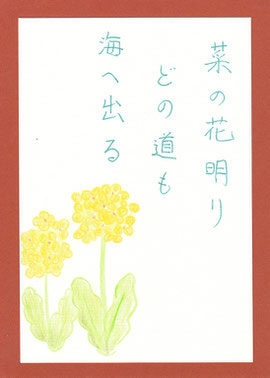 菜の花明り
どの道も
海へ出る